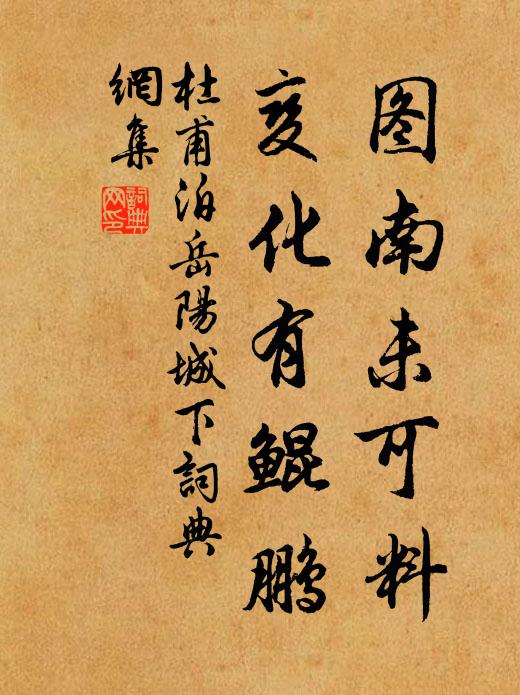 图南未可料
变化有鲲鹏
杜甫泊岳陽城下詞典
網集
詞典
网印